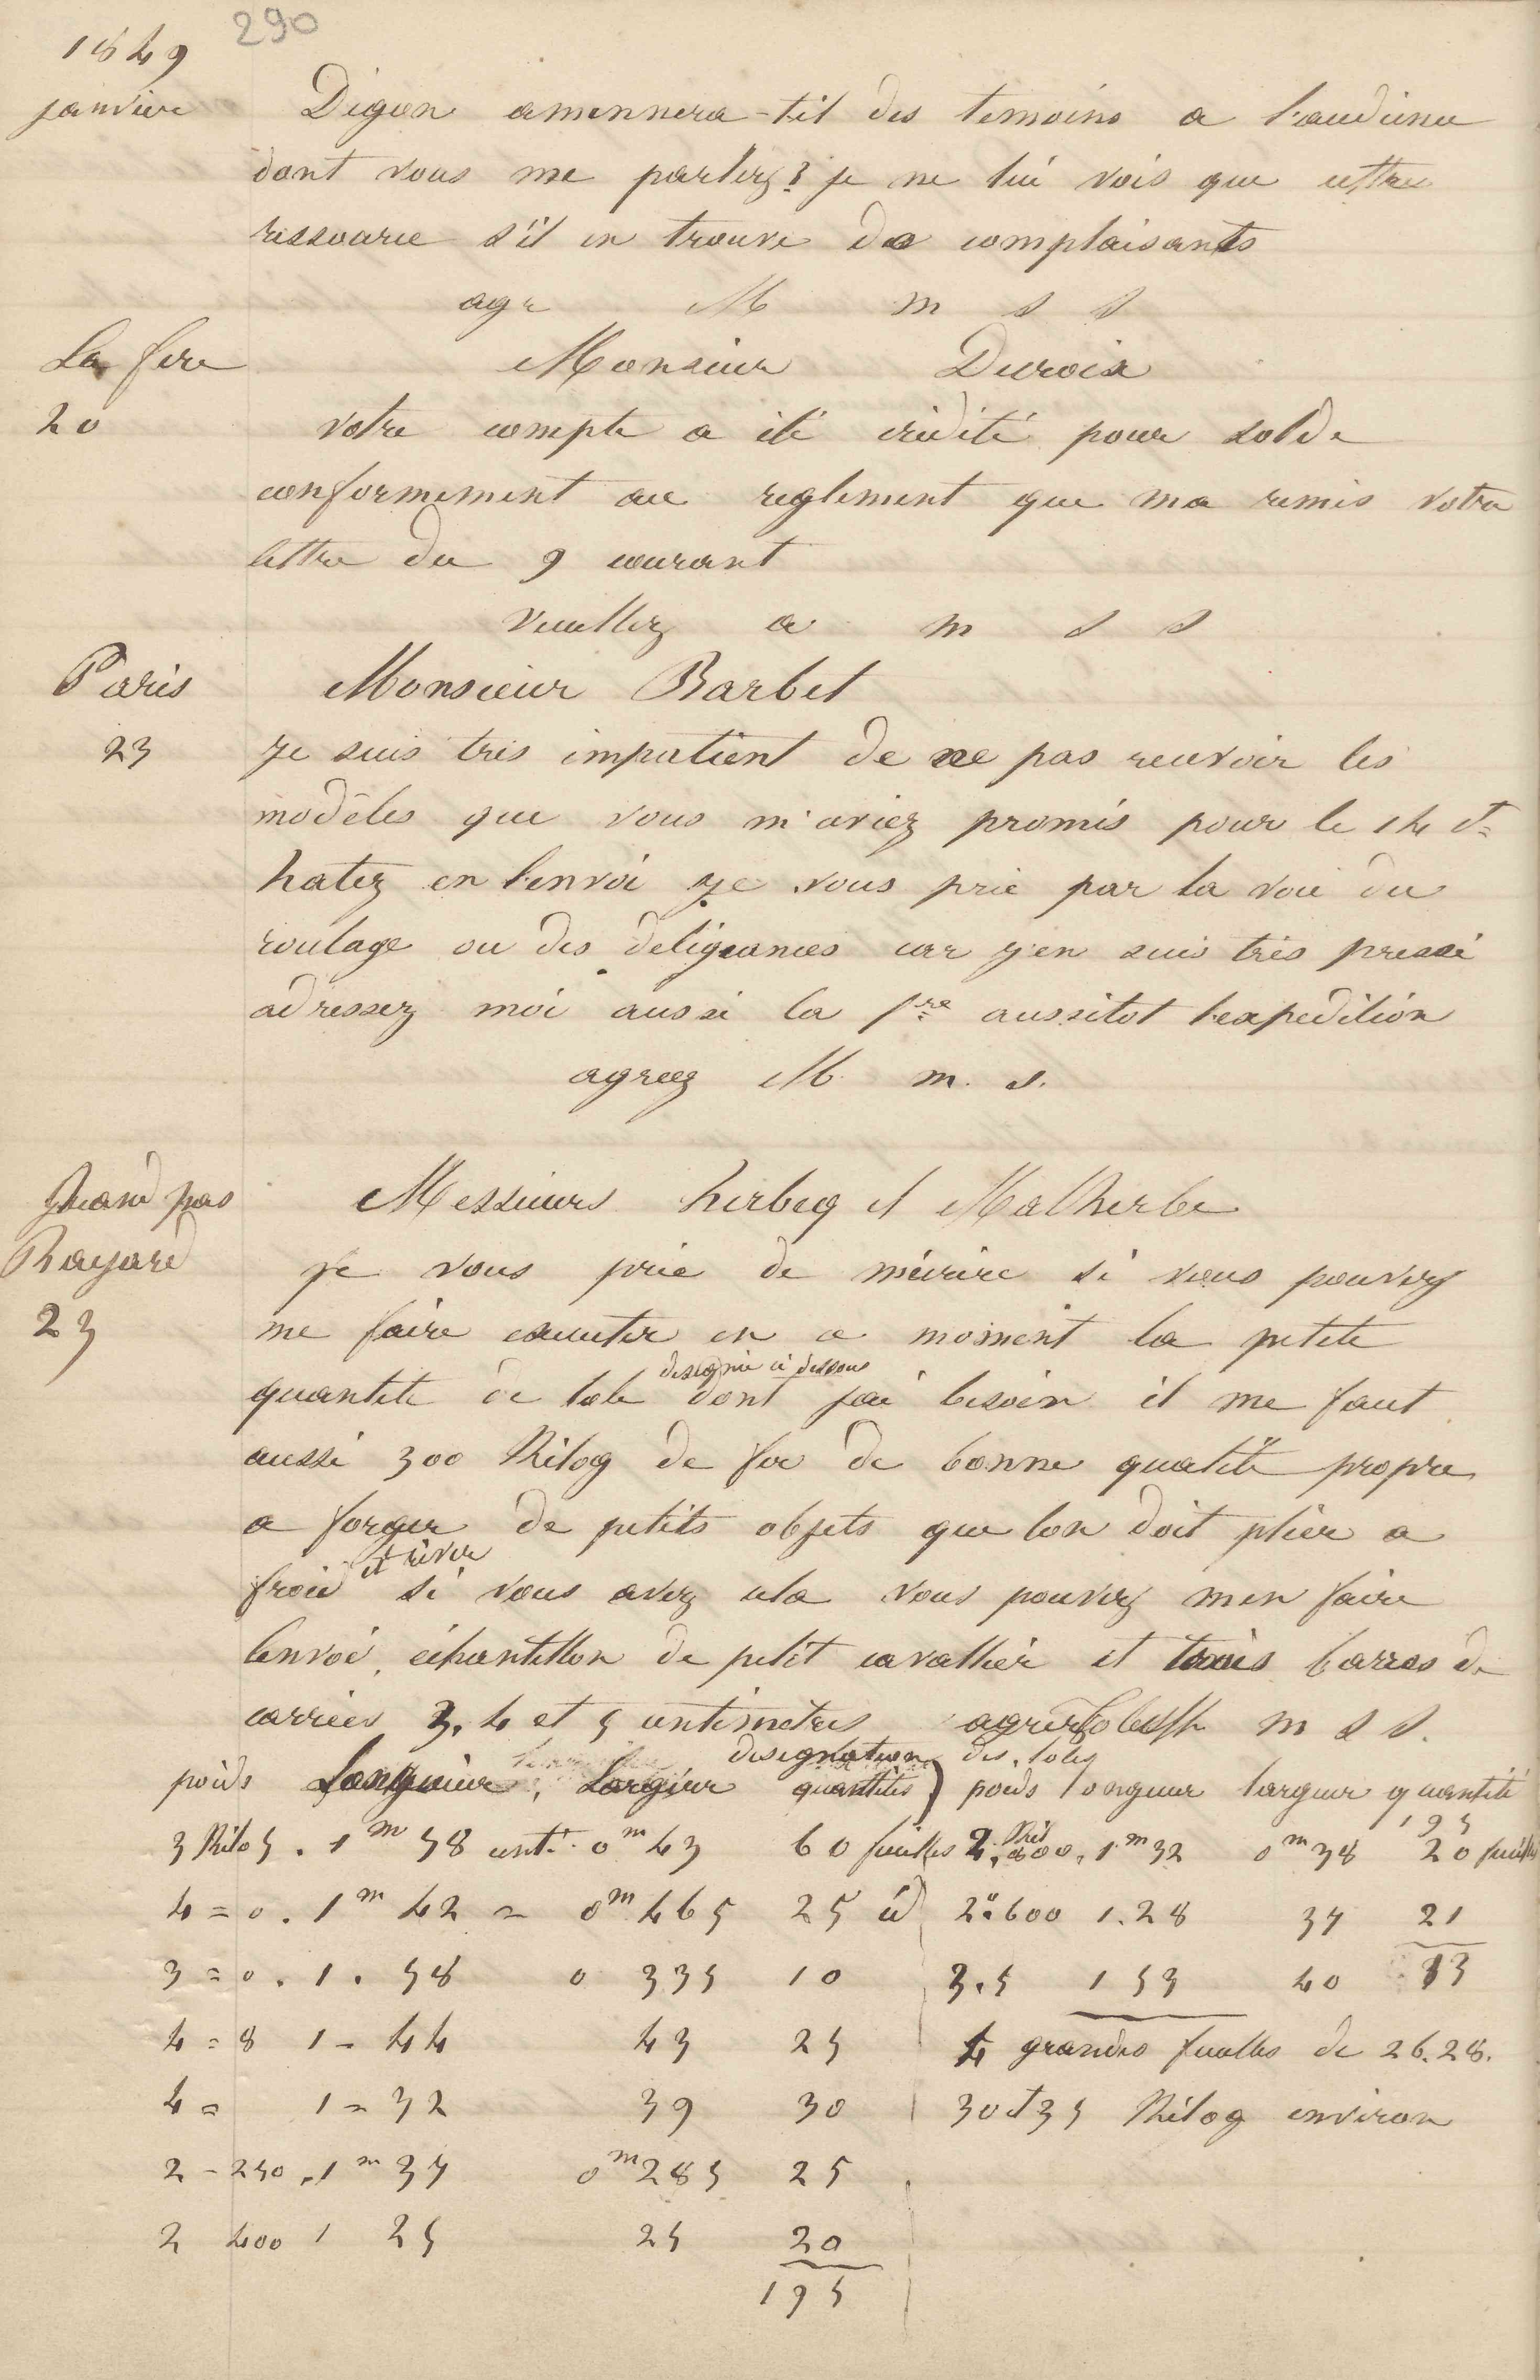 290
1849
janvier
Digon amennera-til des temoins a l'audience
dont vous me parlez? je ne lui vois que cettre
ressource s'il en trouve de complaisants
agr M m s s
La fere
20
Monsieur Decroix
votre compte a été crédité pour solde
conformement au reglement que ma remis votre
lettre du 9 courant
veuillez a m s s
Paris
23
Monsieur Barbet
je suis tres impatient de ne pas recevoir les
modèles que vous m'aviez promis pour le 14 Ct
hatez en l'envoi je vous prie par la voie du
roulage ou des deligeances car j'en suis très pressé
adressez moi aussi la fre aussitot l'expedition
agreez M m. s.
quand pas
Bayard
23
Messieurs herbeq et Malherbe
je vous prie de mécrire si vous pouvez
me faire executer en ce moment la petite
quantite de tole designée ci dessous dont jai besoin il me faut
aussi 300 Kilog de fer de bonne qualité propre
a forger de petits objets que lon doit plier a
froid et river si vous avez cela vous pouvez men faire
lenvoi, échantillon de petit cavallier et trois barres de
carrées 3. 4 et 5 centimetres agreez m s s.
designation des toles
poids Longueur, Largeur quantités) poids longueur largeur quantité
195
3 Kilo 5. 1m 58 cent. 0m 43 60 feuilles 2. Kil 600, 1m 32 0m 38 20 feuilles
4 = 0. 1m 42 = 0m 465 25 id 2" 600 1.28 37 21
3 = 0. 1. 58 0 335 10 3.5 153 40 13
4 = 8 1 - 44 43 25 4 grandes feuilles de 26.28.
4 = 1 = 32 39 30 30 et 35 Kilog environ
2 - 250. 1m 37 0m 285 25
2 400 1 25 25 20
195